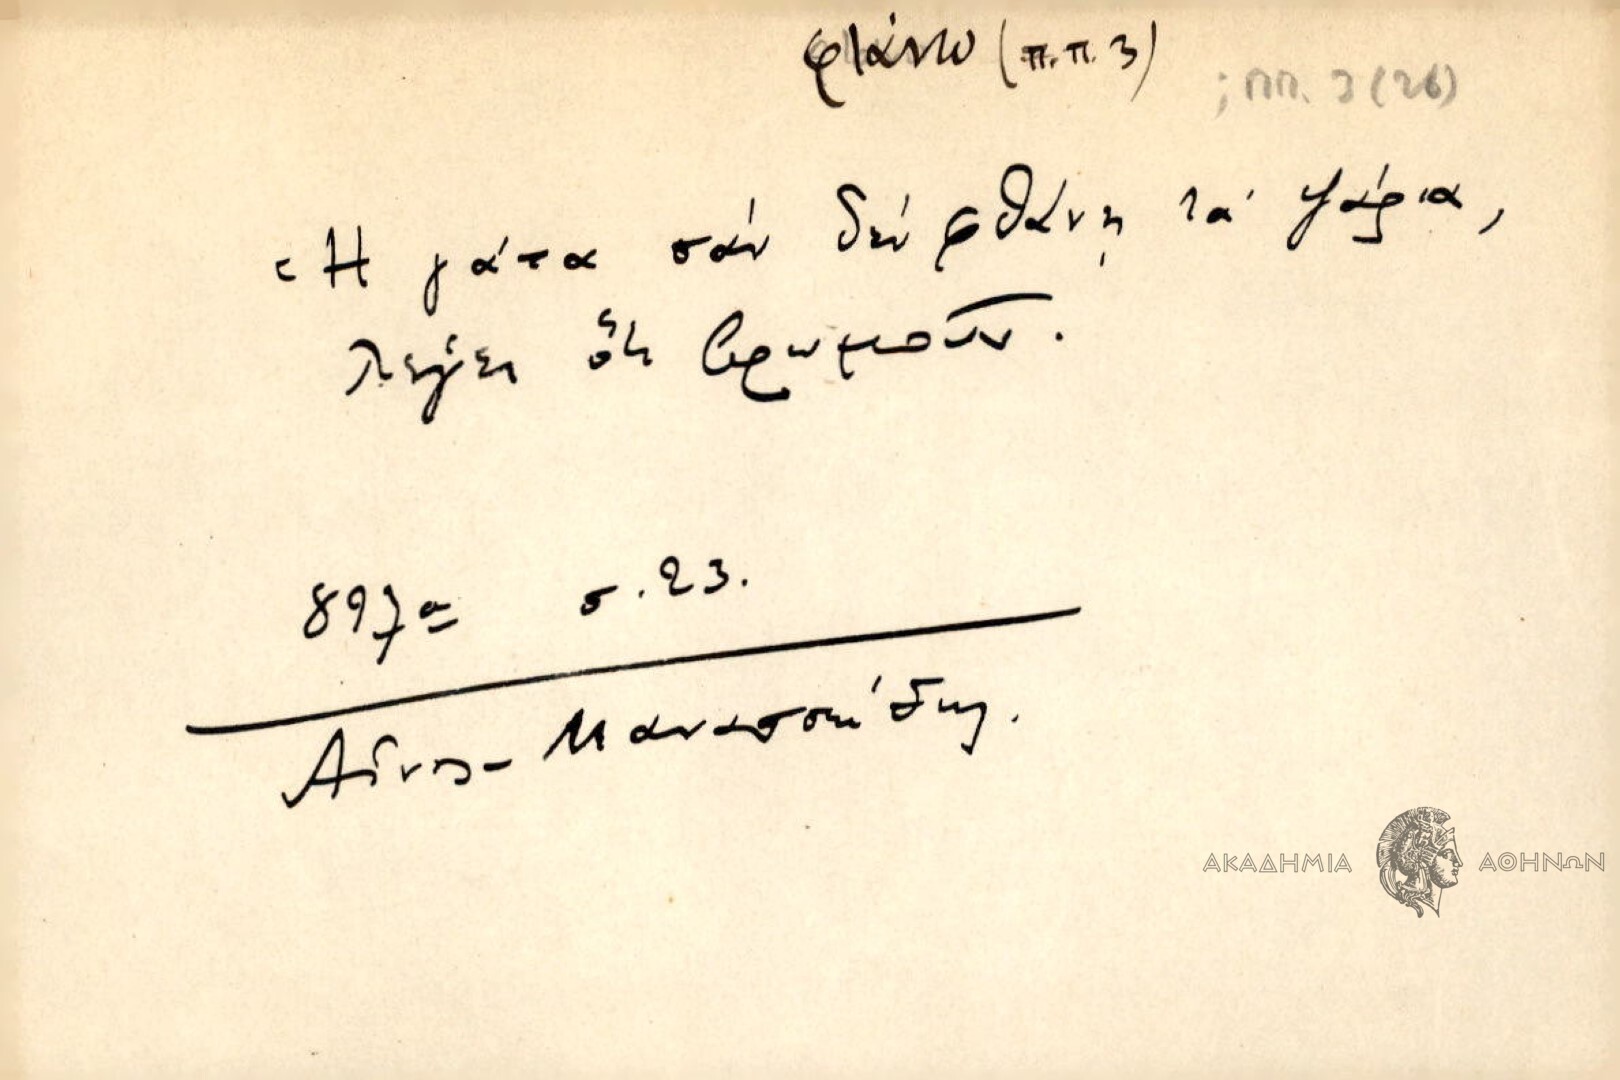 φτάνω (π.π. 3)
; ΠΠ. 3 (26)
Ἡ γάτα σάν δέν φθάνῃ τά ψάρια,
λέγει ὅτι βρωμοῦν.
897α σ. 23.
Αἶνος - Μανασσείδης.
ΑΚΑΔΗΜΙΑ ΑΘΗΝΩΝ